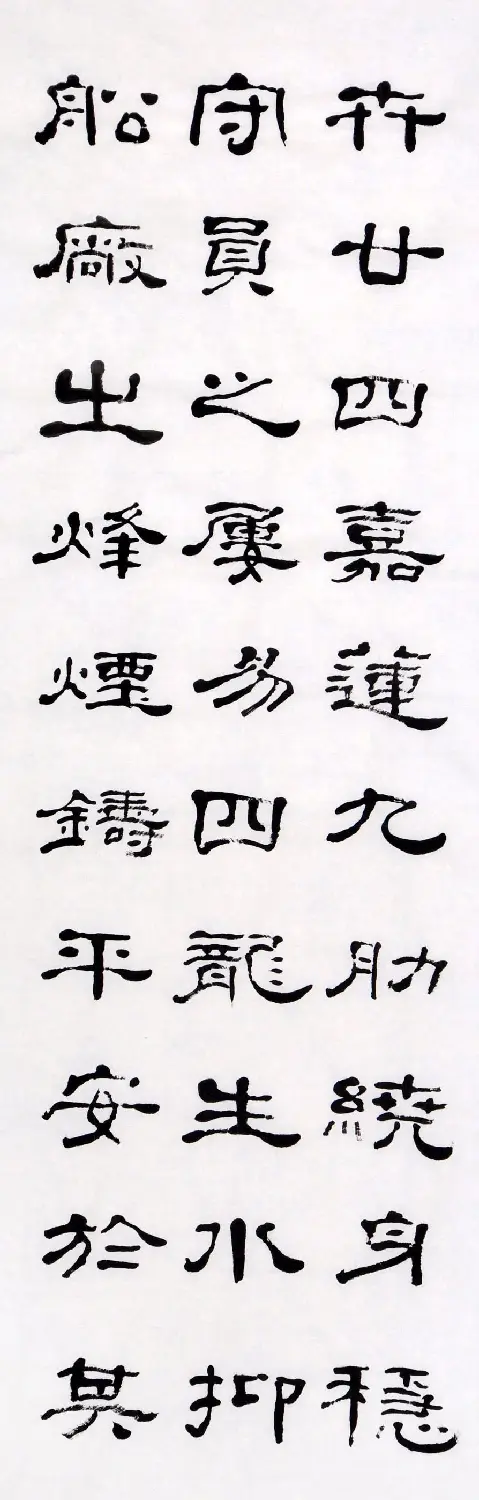 卉廿四嘉蓮九肋繞身穩
守員之屢易四龍生水抑
船廠出烽煙鑄平安於其